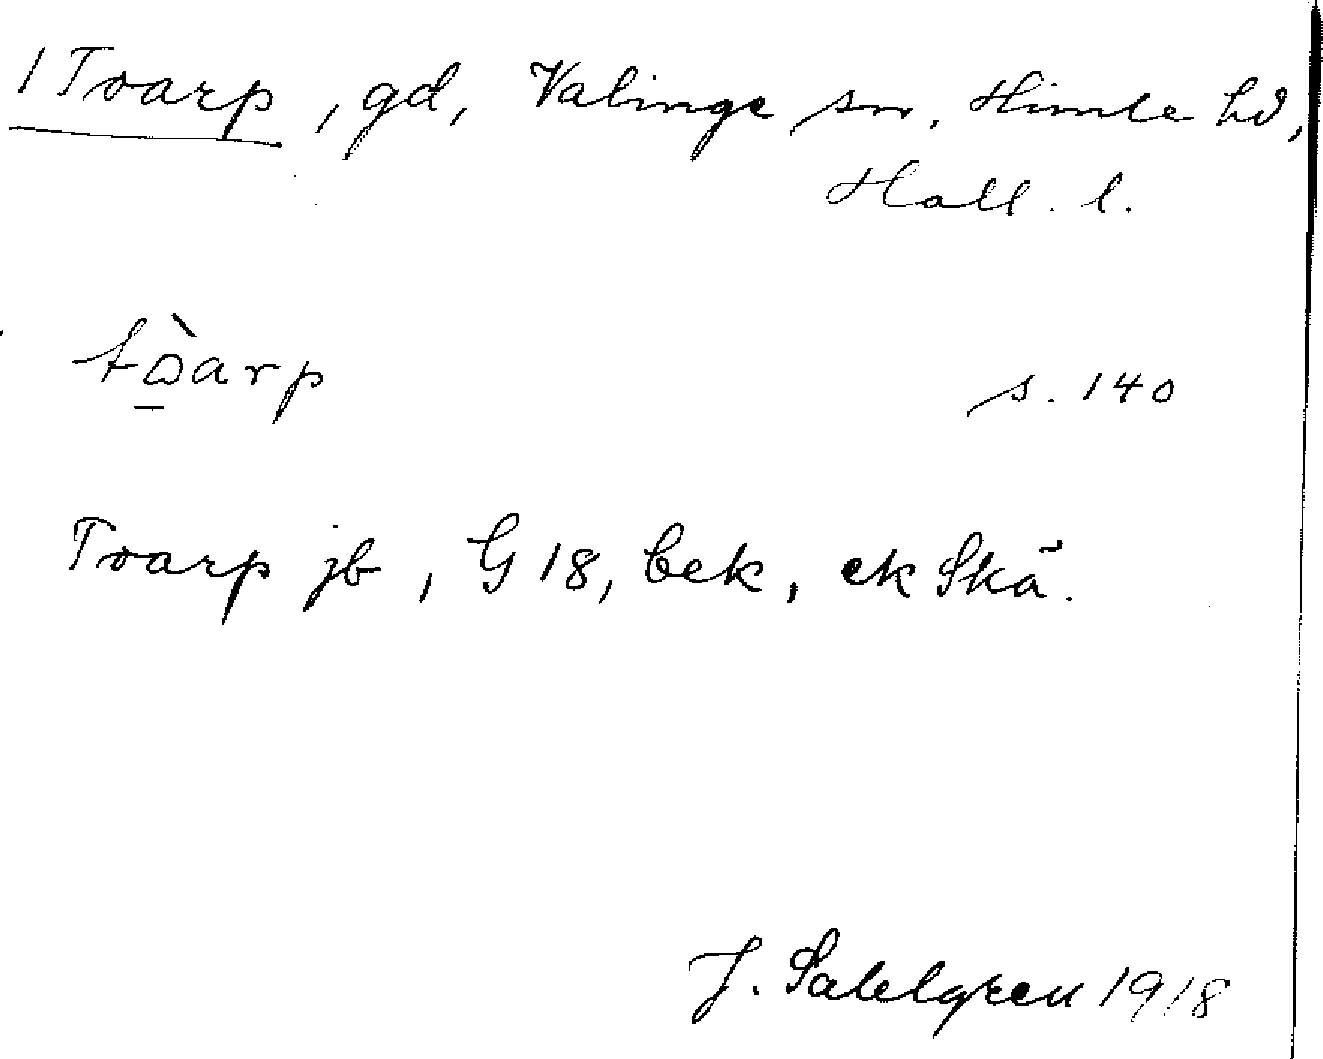 1 Toarp, gd, Valinge sn, Himle hd,
Hall. l.
tò̱arp s. 140
Toarp jb, G 18, bek, ek Skå.
J. Sahlgren 1918